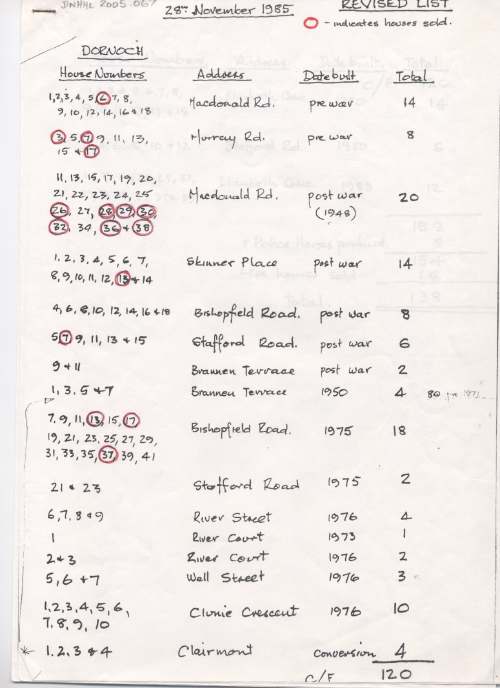 JINHHL 2005.067
28th November 1985
REVISED LIST
- indicates houses sold.
DORNOCH
House Numbers Address Date built Total
1,2,3, 4, 5, 6, 7, 8,
9, 10, 12, 14, 16 & 18 Macdonald Rd. pre war 14
3, 5, 7, 9, 11, 13,
15 & 17 Murray Rd. pre war 8
11, 13, 15, 17, 19, 20,
21, 22, 23, 24, 25
26, 27, 28, 29, 30,
32, 34, 36 & 38 Macdonald Rd. post war (1948) 20
1, 2, 3, 4, 5, 6, 7,
8, 9, 10, 11, 12, 13 & 14 Skinner Place post war 14
4, 6, 8, 10, 12, 14, 16 & 18 Bishopfield Road. post war 8
5, 7, 9, 11, 13 & 15 Stafford Road. post war 6
9 & 11 Brannen Terrace post war 2
1, 3. 5 & 7 Brannen Terrace 1950 4 80
7, 9, 11, 13, 15, 17,
19, 21, 23, 25, 27, 29,
31, 33, 35, 37, 39, 41 Bishopfield Road. 1975 18
21 & 23 Stafford Road 1975 2
6, 7. 8 & 9 River Street 1976 4
1 River Court 1973 1
2 & 3 River Court 1976 2
5, 6 & 7 Well Street 1976 3
1, 2, 3, 4, 5, 6,
7, 8, 9, 10 Clunie Crescent 1976 10
* 1. 2. 3 & 4 Clairmont conversion 4
C/F 120